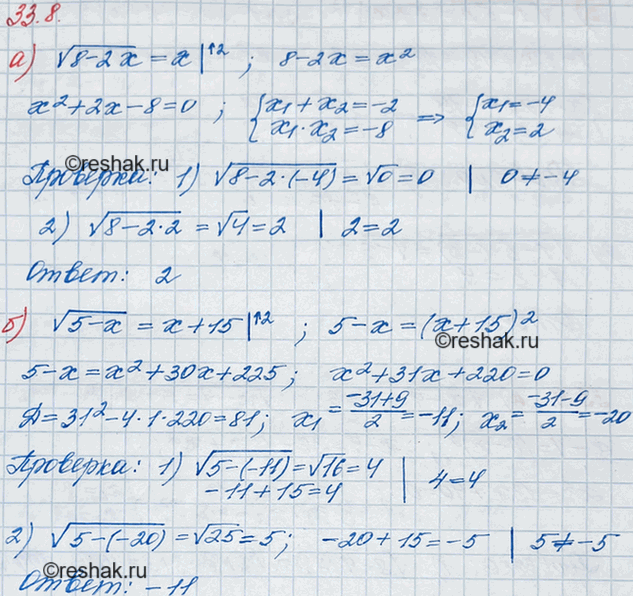 33.8.
а) √(8-2x) = x |↑2 ; 8-2x = x²
x²+2x-8=0 ; { x₁+x₂=-2 x₁·x₂=-8 ⇒ { x₁=-4 x₂=2
©reshak.ru
Проверка: 1) √(8-2·(-4)) = √0 = 0 | 0≠-4
2) √(8-2·2) = √4 = 2 | 2=2
Ответ: 2
б) √(5-x) = x+15 |↑2 ; 5-x = (x+15)²
©reshak.ru
5-x = x²+30x+225; x²+31x+220=0
Д = 31²-4·1·220 = 81; x₁ = (-31+9)/2 = -11; x₂ = (-31-9)/2 = -20
Проверка: 1) √(5-(-11)) = √16 = 4 | 4=4
-11+15=4
2) √(5-(-20)) = √25 = 5; -20+15=-5 | 5≠-5
Ответ: -11